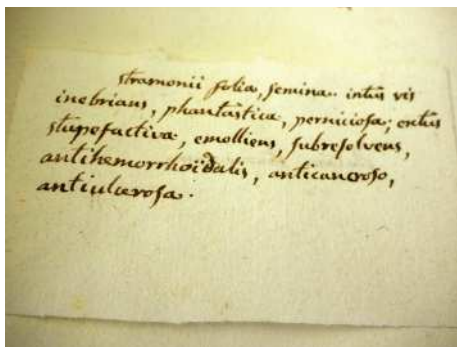 stramonii folia, semina. intùs vis
inebrians, phantastica, perniciosa; extùs
stupefactiva, emolliens, subresolvens,
antihemorrhoïdalis, anticanceroso,
antiulcerosa.